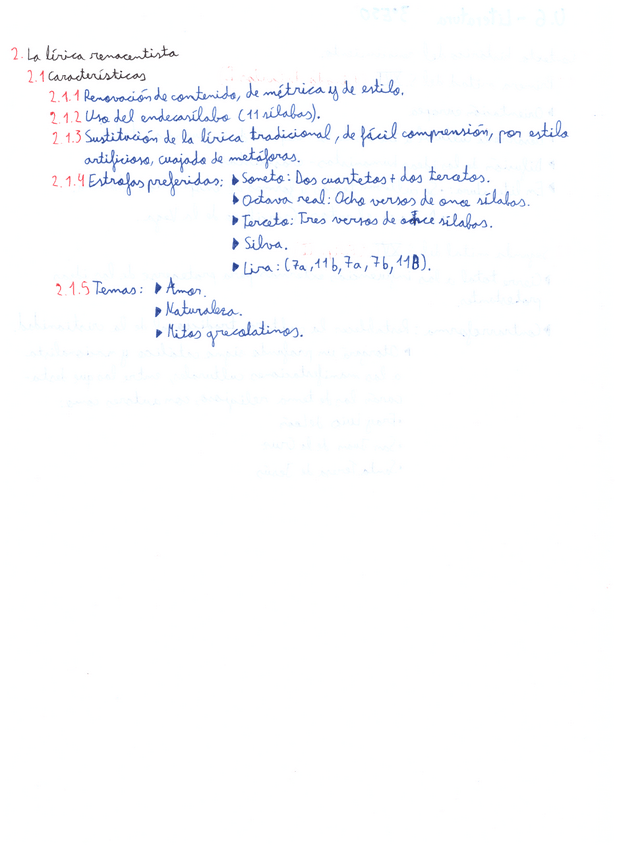 2. La lírica renacentista
2.1 Características
2.1.1 Renovación de contenido, de métrica y de estilo.
2.1.2 Uso del endecasílabo (11 sílabas).
2.1.3 Sustitución de la lírica tradicional, de fácil comprensión, por estilo
artificioso, cuajado de metáforas.
2.1.4 Estrofas preferidas: ▶ Soneto: Dos cuartetos + dos tercetos.
▶ Octava real: Ocho versos de once sílabas.
▶ Terceto: Tres versos de once sílabas.
▶ Silva.
▶ Lira: (7a, 11b, 7a, 7b, 11B).
2.1.5 Temas: ▶ Amor.
▶ Naturaleza.
▶ Mitos grecolatinos.